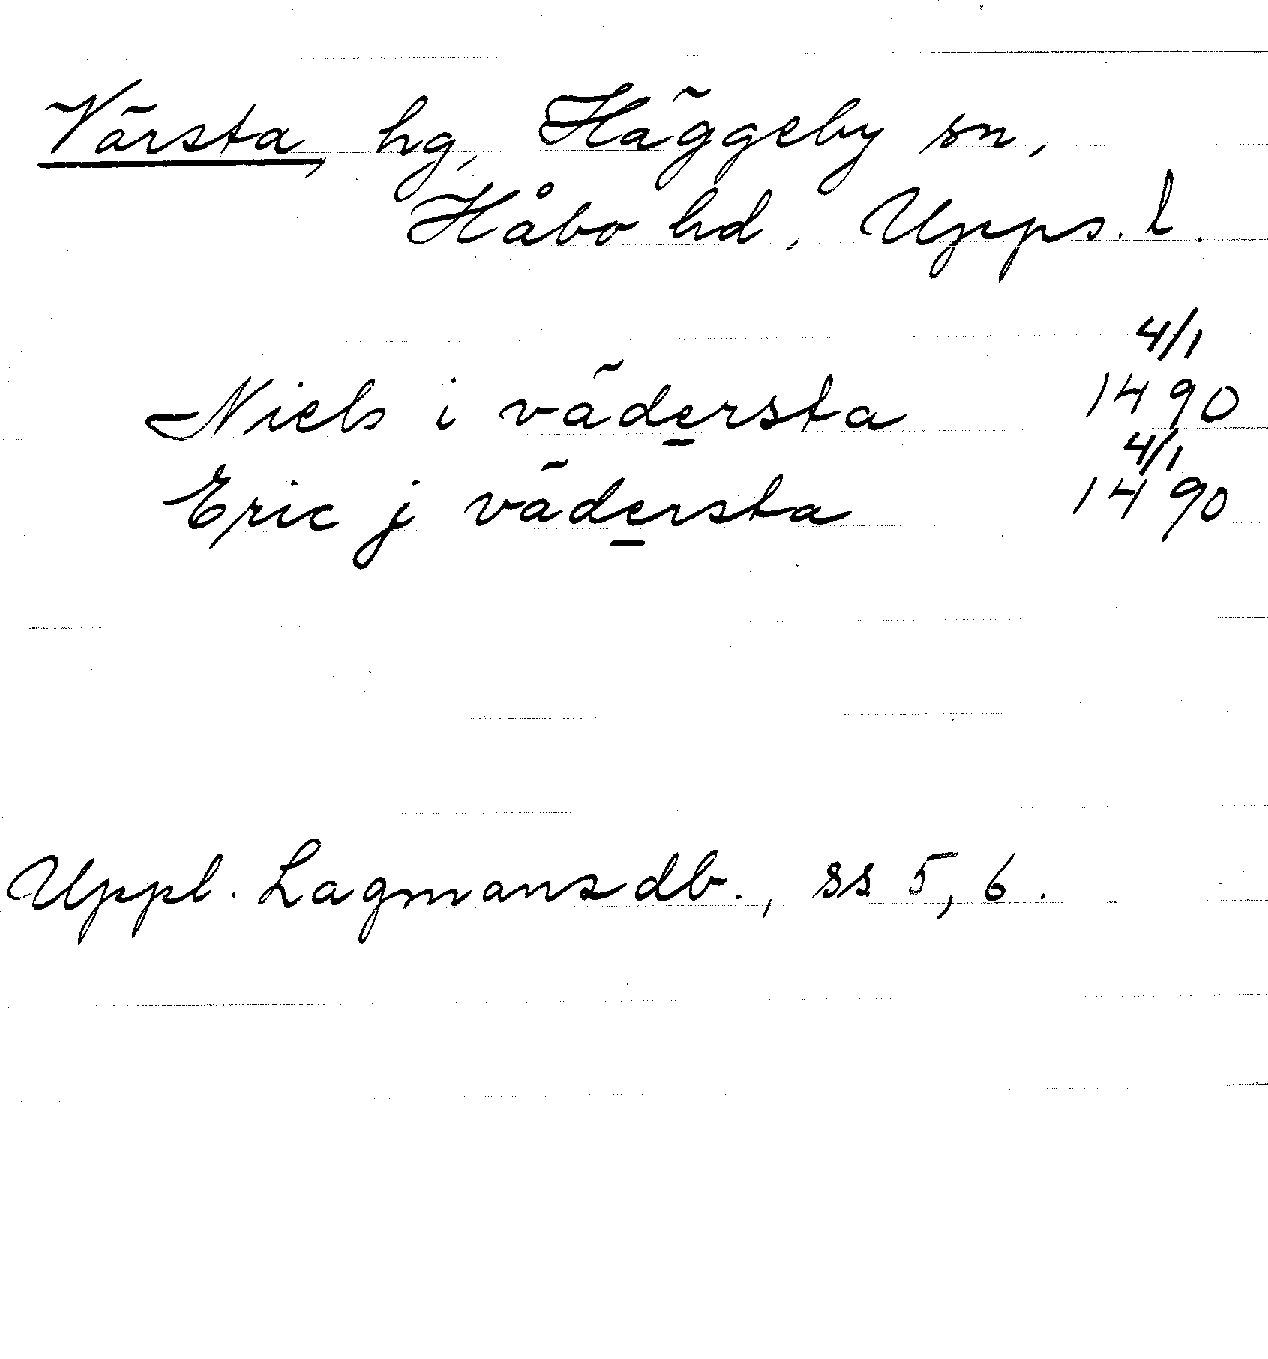 Värsta, hg, Häggeby sn,
Håbo hd, Upps. l.
4/1
Niels i vädersta 1490
4/1
Eric j vädersta 1490
Uppl. Lagmansdb., ss 5, 6.